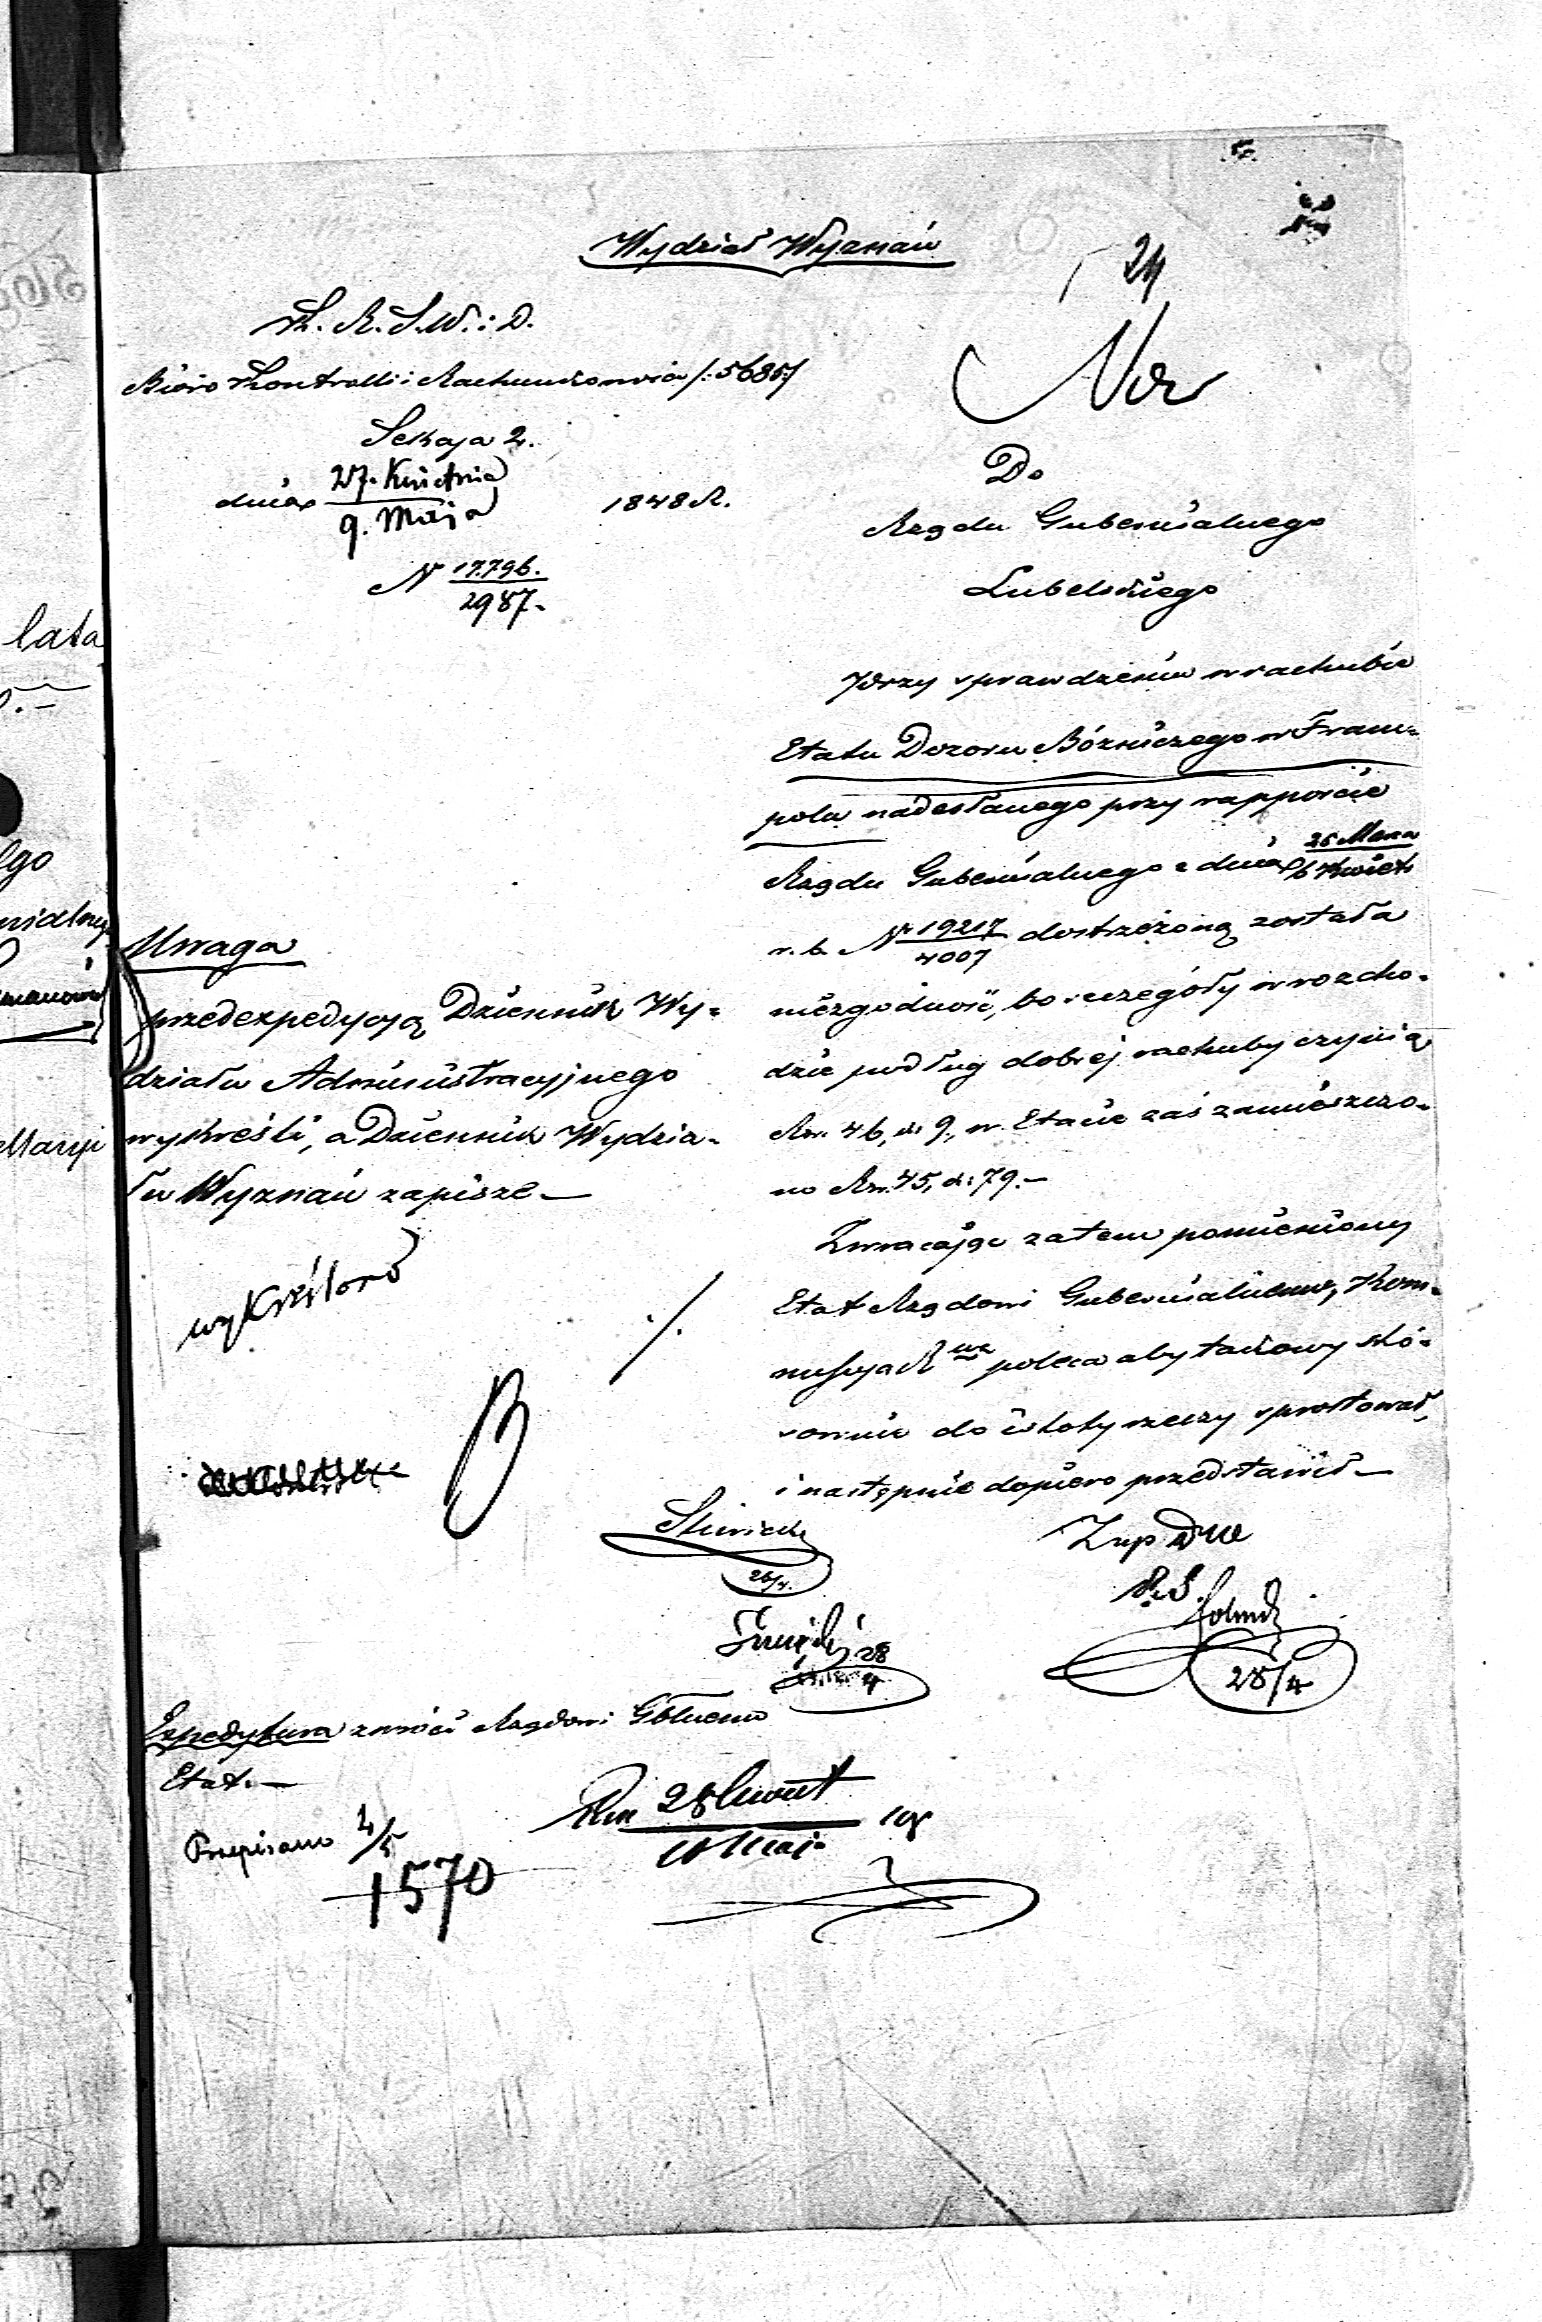 Wydział Wyznań
24
K. R. S. W. i D.
Biuro Kontrolli i Rachunkowości /:5685:/
Sekcja 2.
dnia 27. Kwietnia / 9. Maja 1848 R.
N 17.796. / 2987.
Do
Rządu Gubernialnego
Lubelskiego
Przy sprawdzeniu w rachubie
Etatu Dozoru Bóżniczego w Fram=
polu nadesłanego przy rapporcie
Rządu Gubernialnego z dnia 25 Marca / 6 Kwiet.
r. b. N 19217 / 4007 dostrzeżoną została
niezgodność, bo szczegóły w rozcho=
dzie podług dobrej rachuby czynią
Rsr. 46, k. 9, w Etacie zaś zamieszczo=
no Rsr. 45, k: 79.—
Zwracając zatem pomieniony
Etat Rządowi Gubernialnemu, Kom=
missya R wa poleca aby takowy sto=
sownie do istoty rzeczy sprostował,
i następnie dopiero przedstawił—
Uwaga
przed expedycyą Dziennik Wy=
działu Administracyjnego
wykreśli, a Dziennik Wydzia=
łu Wyznań zapisze—
wykreślono
./.
26/4.
28/4
28/4
Expedytura zwróci Rządowi Gblnemu
Etat.—
Przepisano 4/5
1570
28 Kwiet / 10 Maja